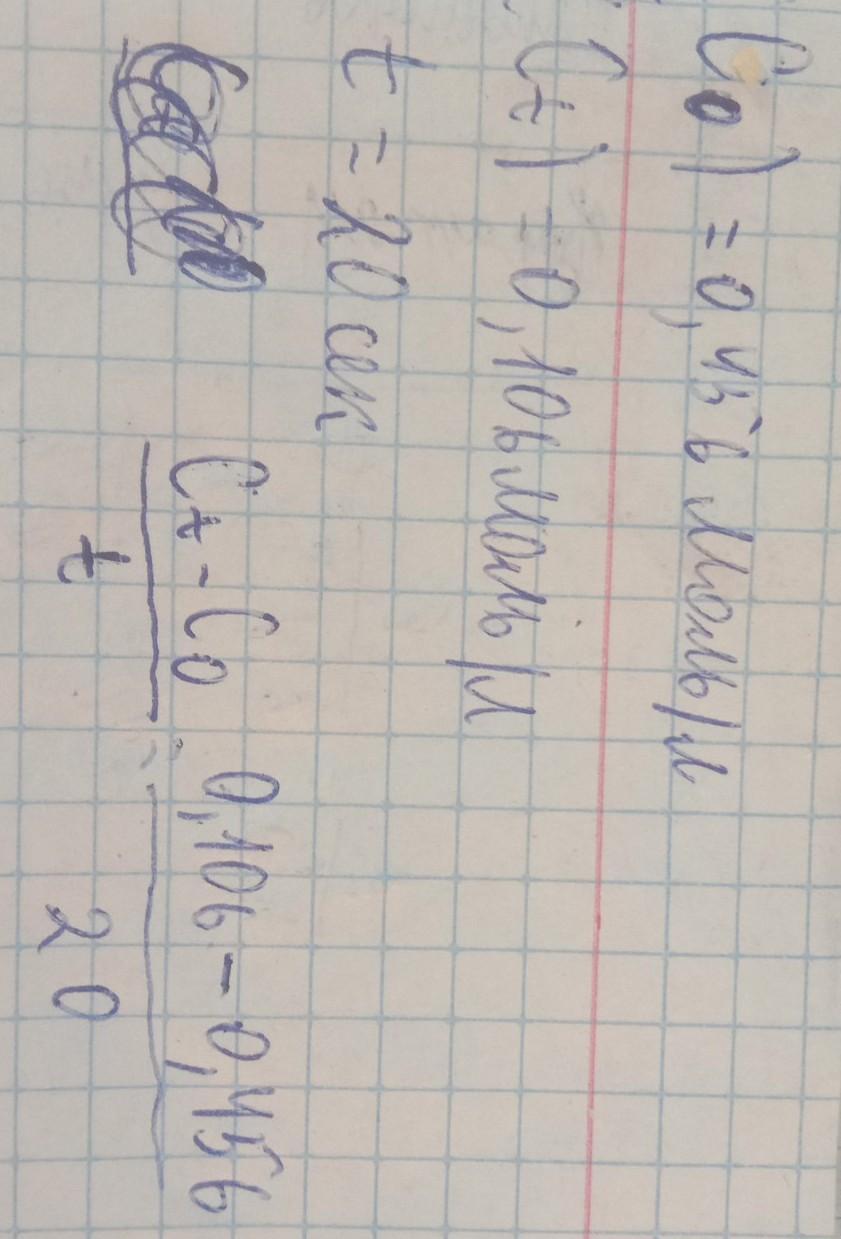 C0) = 0,456 моль/л
Ct) = 0,106 моль/л
t = 20 сек
Ct - C0
t
0,106 - 0,456
20